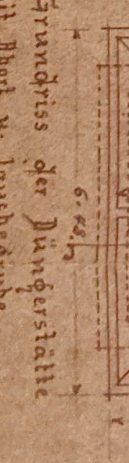 6.45
Grundriss der Düngerstätte
mit Abort u. Jauchegrube